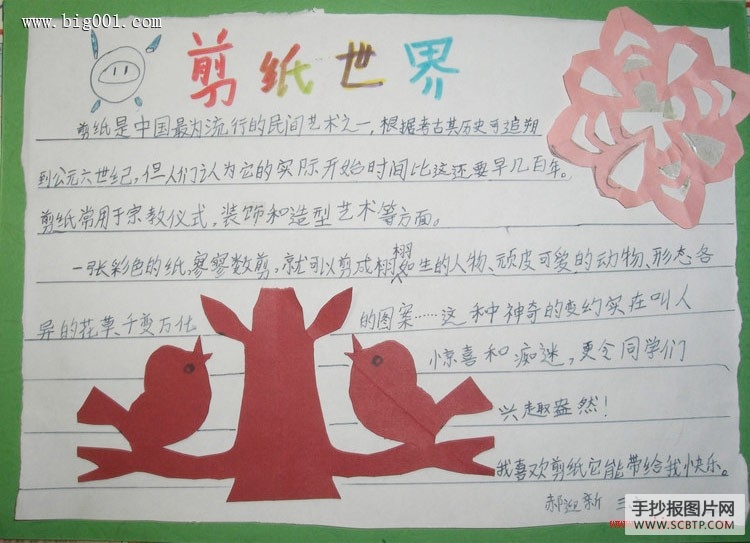 www.big001.com
剪纸世界
剪纸是中国最为流行的民间艺术之一，根据考古其历史可追朔
到公元六世纪，但人们认为它的实际开始时间比这还要早几百年。
剪纸常用于宗教仪式，装饰和造型艺术等方面。
一张彩色的纸，寥寥数剪，就可以剪成栩栩如生的人物、顽皮可爱的动物、形态各
异的花草、千变万化的图案……这种神奇的变幻实在叫人
惊喜和痴迷，更令同学们
兴趣盎然！
我喜欢剪纸它能带给我快乐。
郝迎新 三
手抄报图片网
WWW.SCBTP.COM